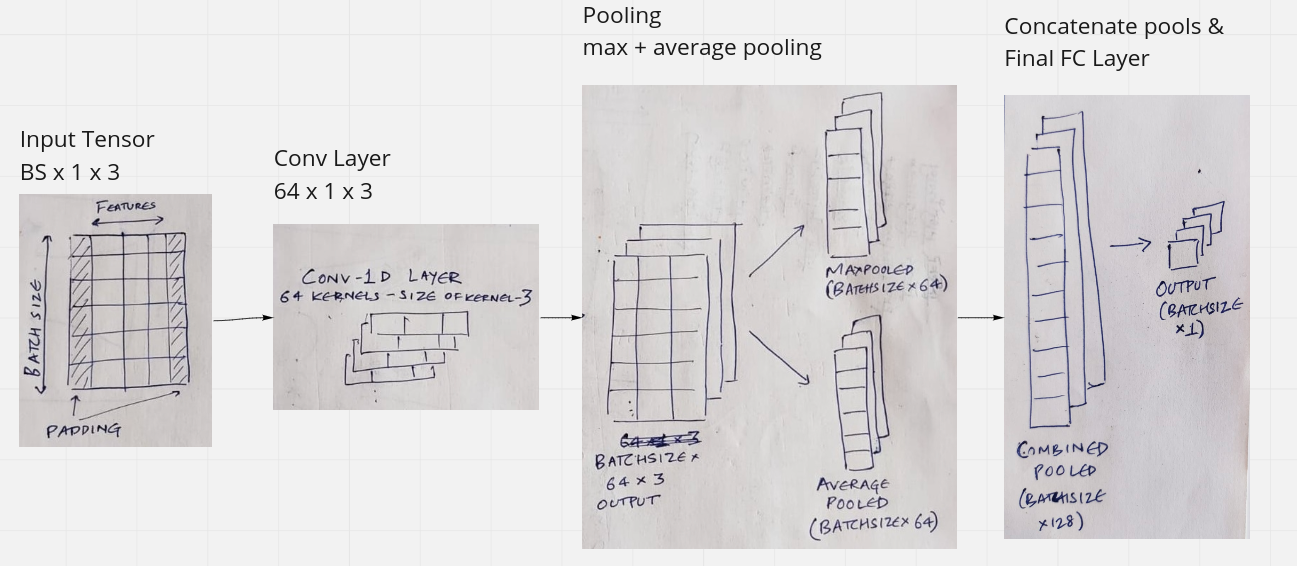 Input Tensor
BS x 1 x 3
FEATURES
BATCH SIZE
PADDING
Conv Layer
64 x 1 x 3
CONV-1D LAYER
64 KERNELS - SIZE OF KERNEL-3
Pooling
max + average pooling
64 x 1 x 3
BATCHSIZE x
64 x 3
OUTPUT
MAXPOOLED
(BATCHSIZE x 64)
AVERAGE
POOLED
(BATCHSIZE x 64)
Concatenate pools &
Final FC Layer
COMBINED
POOLED
(BATCHSIZE
x128)
OUTPUT
(BATCHSIZE
x1)